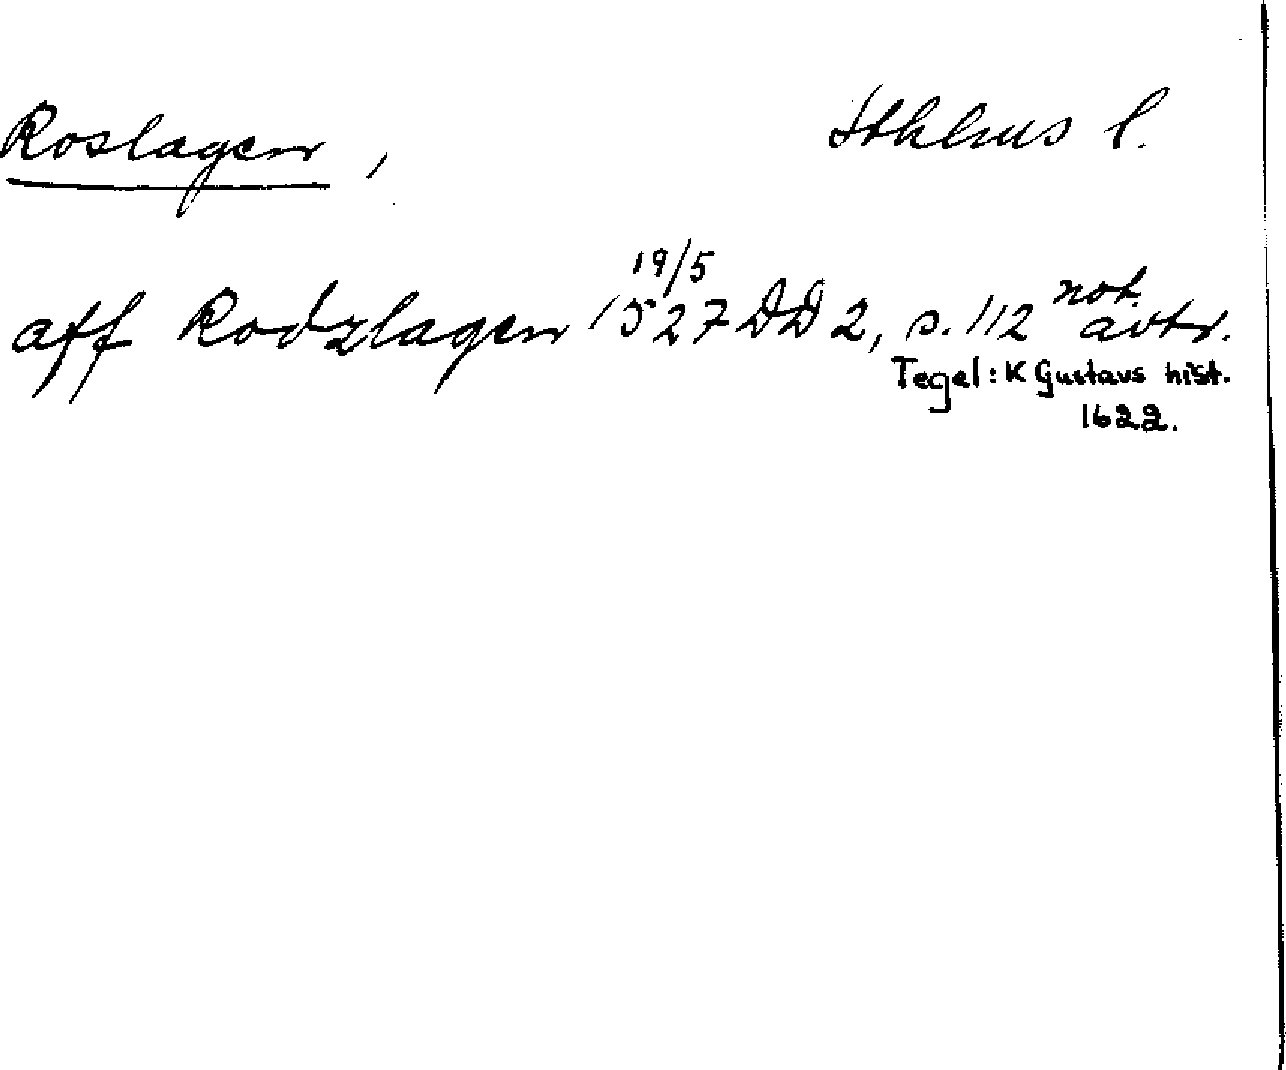 Roslagen, Sthlms l.
aff Rodzlagen 19/5 1527 DD 2, s. 112 not. avtr.
Tegel: K Gustavs hist.
1622.